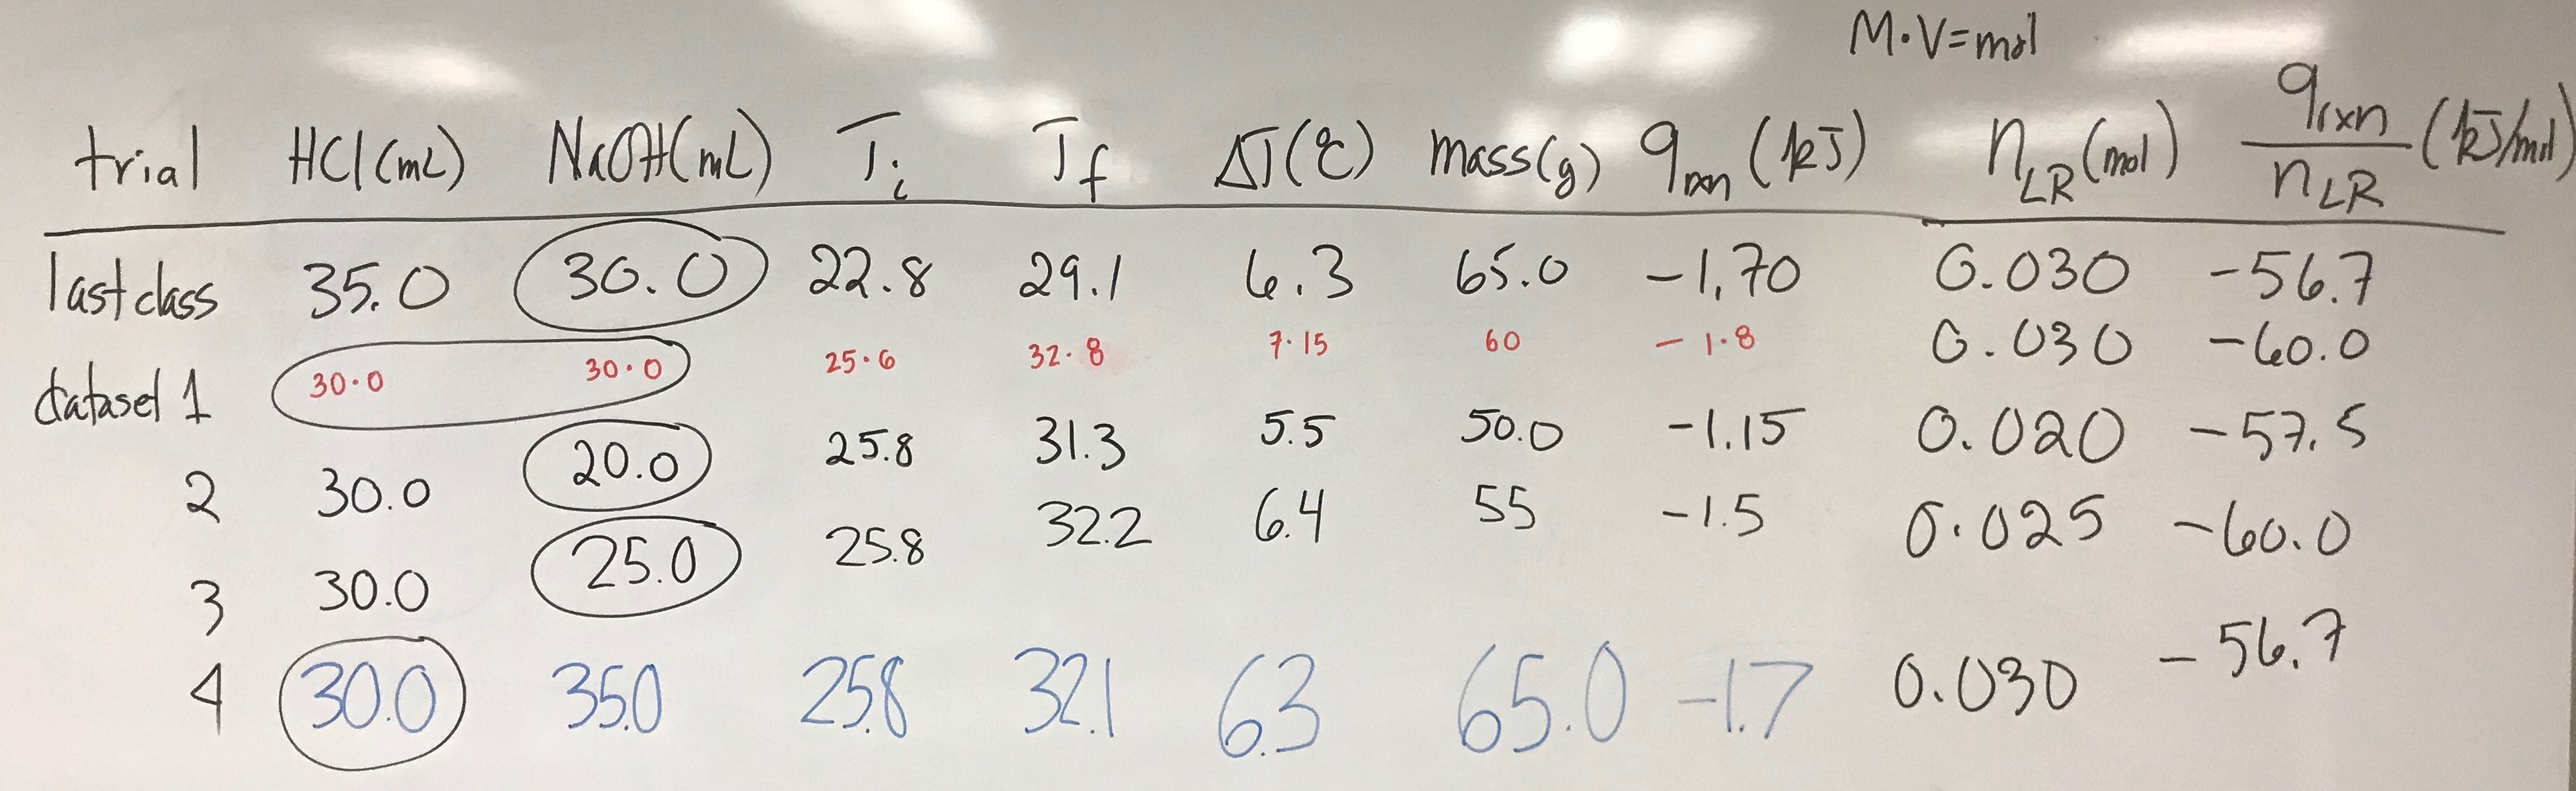 M·V=mol
trial HCl(mL) NaOH(mL) Ti Tf ΔT(°C) mass(g) qrxn(kJ) nLR(mol) qrxn/nLR (kJ/mol)
last class 35.0 30.0 22.8 29.1 6.3 65.0 -1.70 0.030 -56.7
dataset 1 30.0 30.0 25.6 32.8 7.15 60 -1.8 0.030 -60.0
2 30.0 20.0 25.8 31.3 5.5 50.0 -1.15 0.020 -57.5
3 30.0 25.0 25.8 32.2 6.4 55 -1.5 0.025 -60.0
4 30.0 35.0 25.8 32.1 6.3 65.0 -1.7 0.030 -56.7